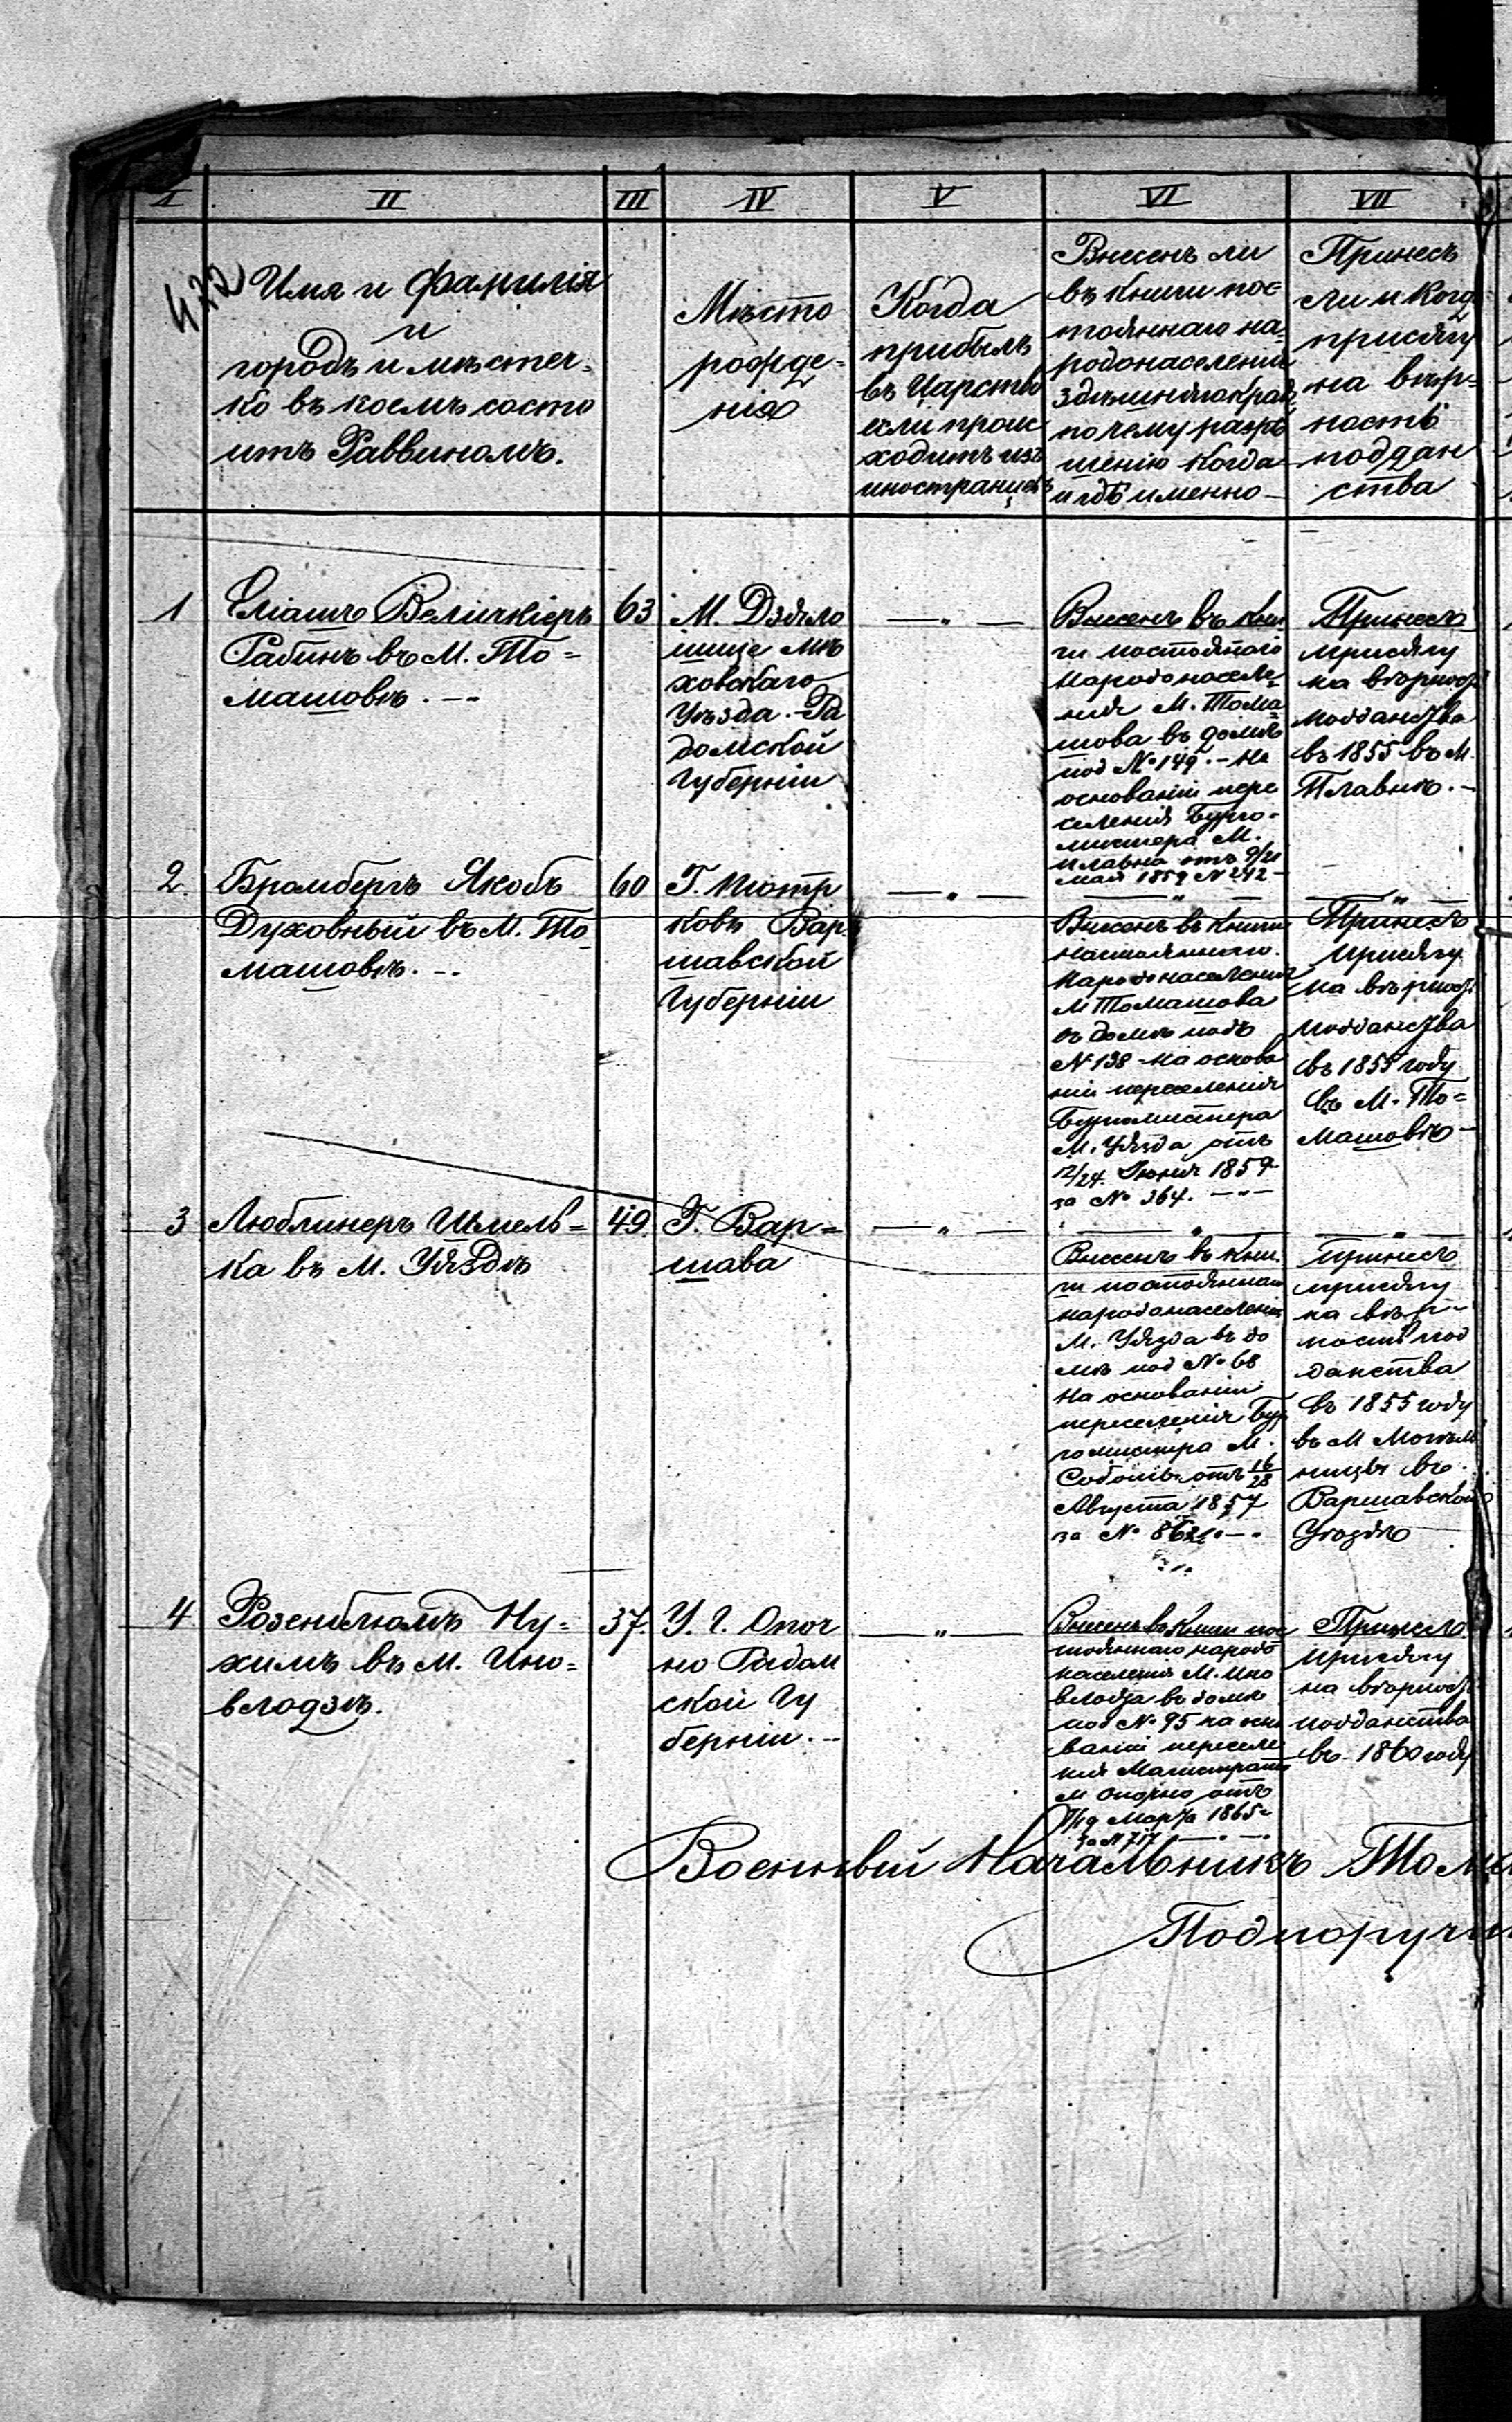 I II III IV V VI VII
472
Имя и фамилія
и
городъ и мѣстеч-
ко въ коемъ состо
итъ Раввиномъ.
Мѣсто
рожде-
нія
Когда
прибылъ
въ Царство
если проис
ходитъ изъ
иностранцевъ
Внесенъ ли
въ книги пос
тояннаго на-
родонаселенія
здѣшняго края
по чему разрѣ
шенію когда
и гдѣ именно
Принесъ
ли и когда
присягу
на вѣр-
ность
поддан
ства
1
Еліашъ Величкіеръ
Рабинъ въ М. То-
машовѣ. --
63
М. Дзяло
шице Мѣ
ховскаго
Уѣзда. Ра
домской
Губерніи
— „ —
Внесенъ въ Кни
ги постояннаго
народонаселе-
нія М. Тома
шова въ домѣ
под № 149. - На
основаніи пере
селенія Бурго-
мистра М.
Плавна отъ 9/21
Мая 1859 № 242
Принесъ
присягу
на вѣрность
подданства
въ 1855 въ М.
Плавнѣ. -
2.
Бромбергъ Якобъ
Духовный въ М. То
машовѣ. -.
60
Г. Піотр
ковъ Вар
шавской
Губерніи
— „ —
Внесенъ въ книги
постояннаго
народонаселенія
М Томашова
въ домѣ подъ
№ 138 - на основа
ніи переселенія
Бургомистра
М. Уязда отъ
12/24 Іюня 1859
за № 364. — „ —
Принесъ
присягу
на вѣрность
подданства
въ 1855 году
въ М. То-
машовѣ -
3
Люблинеръ Шмель-
ка въ М. Уяздѣ
49.
Г. Вар-
шава
— „ —
Внесенъ въ Кни
ги постояннаго
народонаселенія
М. Уязда въ до
мѣ под № 68
На основаніи
переселенія Бур
гомистра М.
отъ 16/28
Августа 1857
за №
Принесъ
присягу
на вѣр-
ность под
данства
въ 1855 году
въ М Могѣль
ницы въ
Варшавской
Уѣздѣ
4
Розенблюмъ Ну-
химъ въ М. Ино-
влодзѣ.
37.
У. Г. Опоч
но Радом
ской Гу
берніи. -
— „ —
Внесенъ въ Книги пос
тояннаго народо
населенія М. Ино
влодза въ домѣ
под № 95 на осно
ваніи переселе
нія Магистрата
М Опочно отъ
7/19 Марта 1865 г
за № 717 — . —
Принесъ
присягу
на вѣрность
подданства
въ 1860 году
Военный Начальникъ Тома
Подпоручи